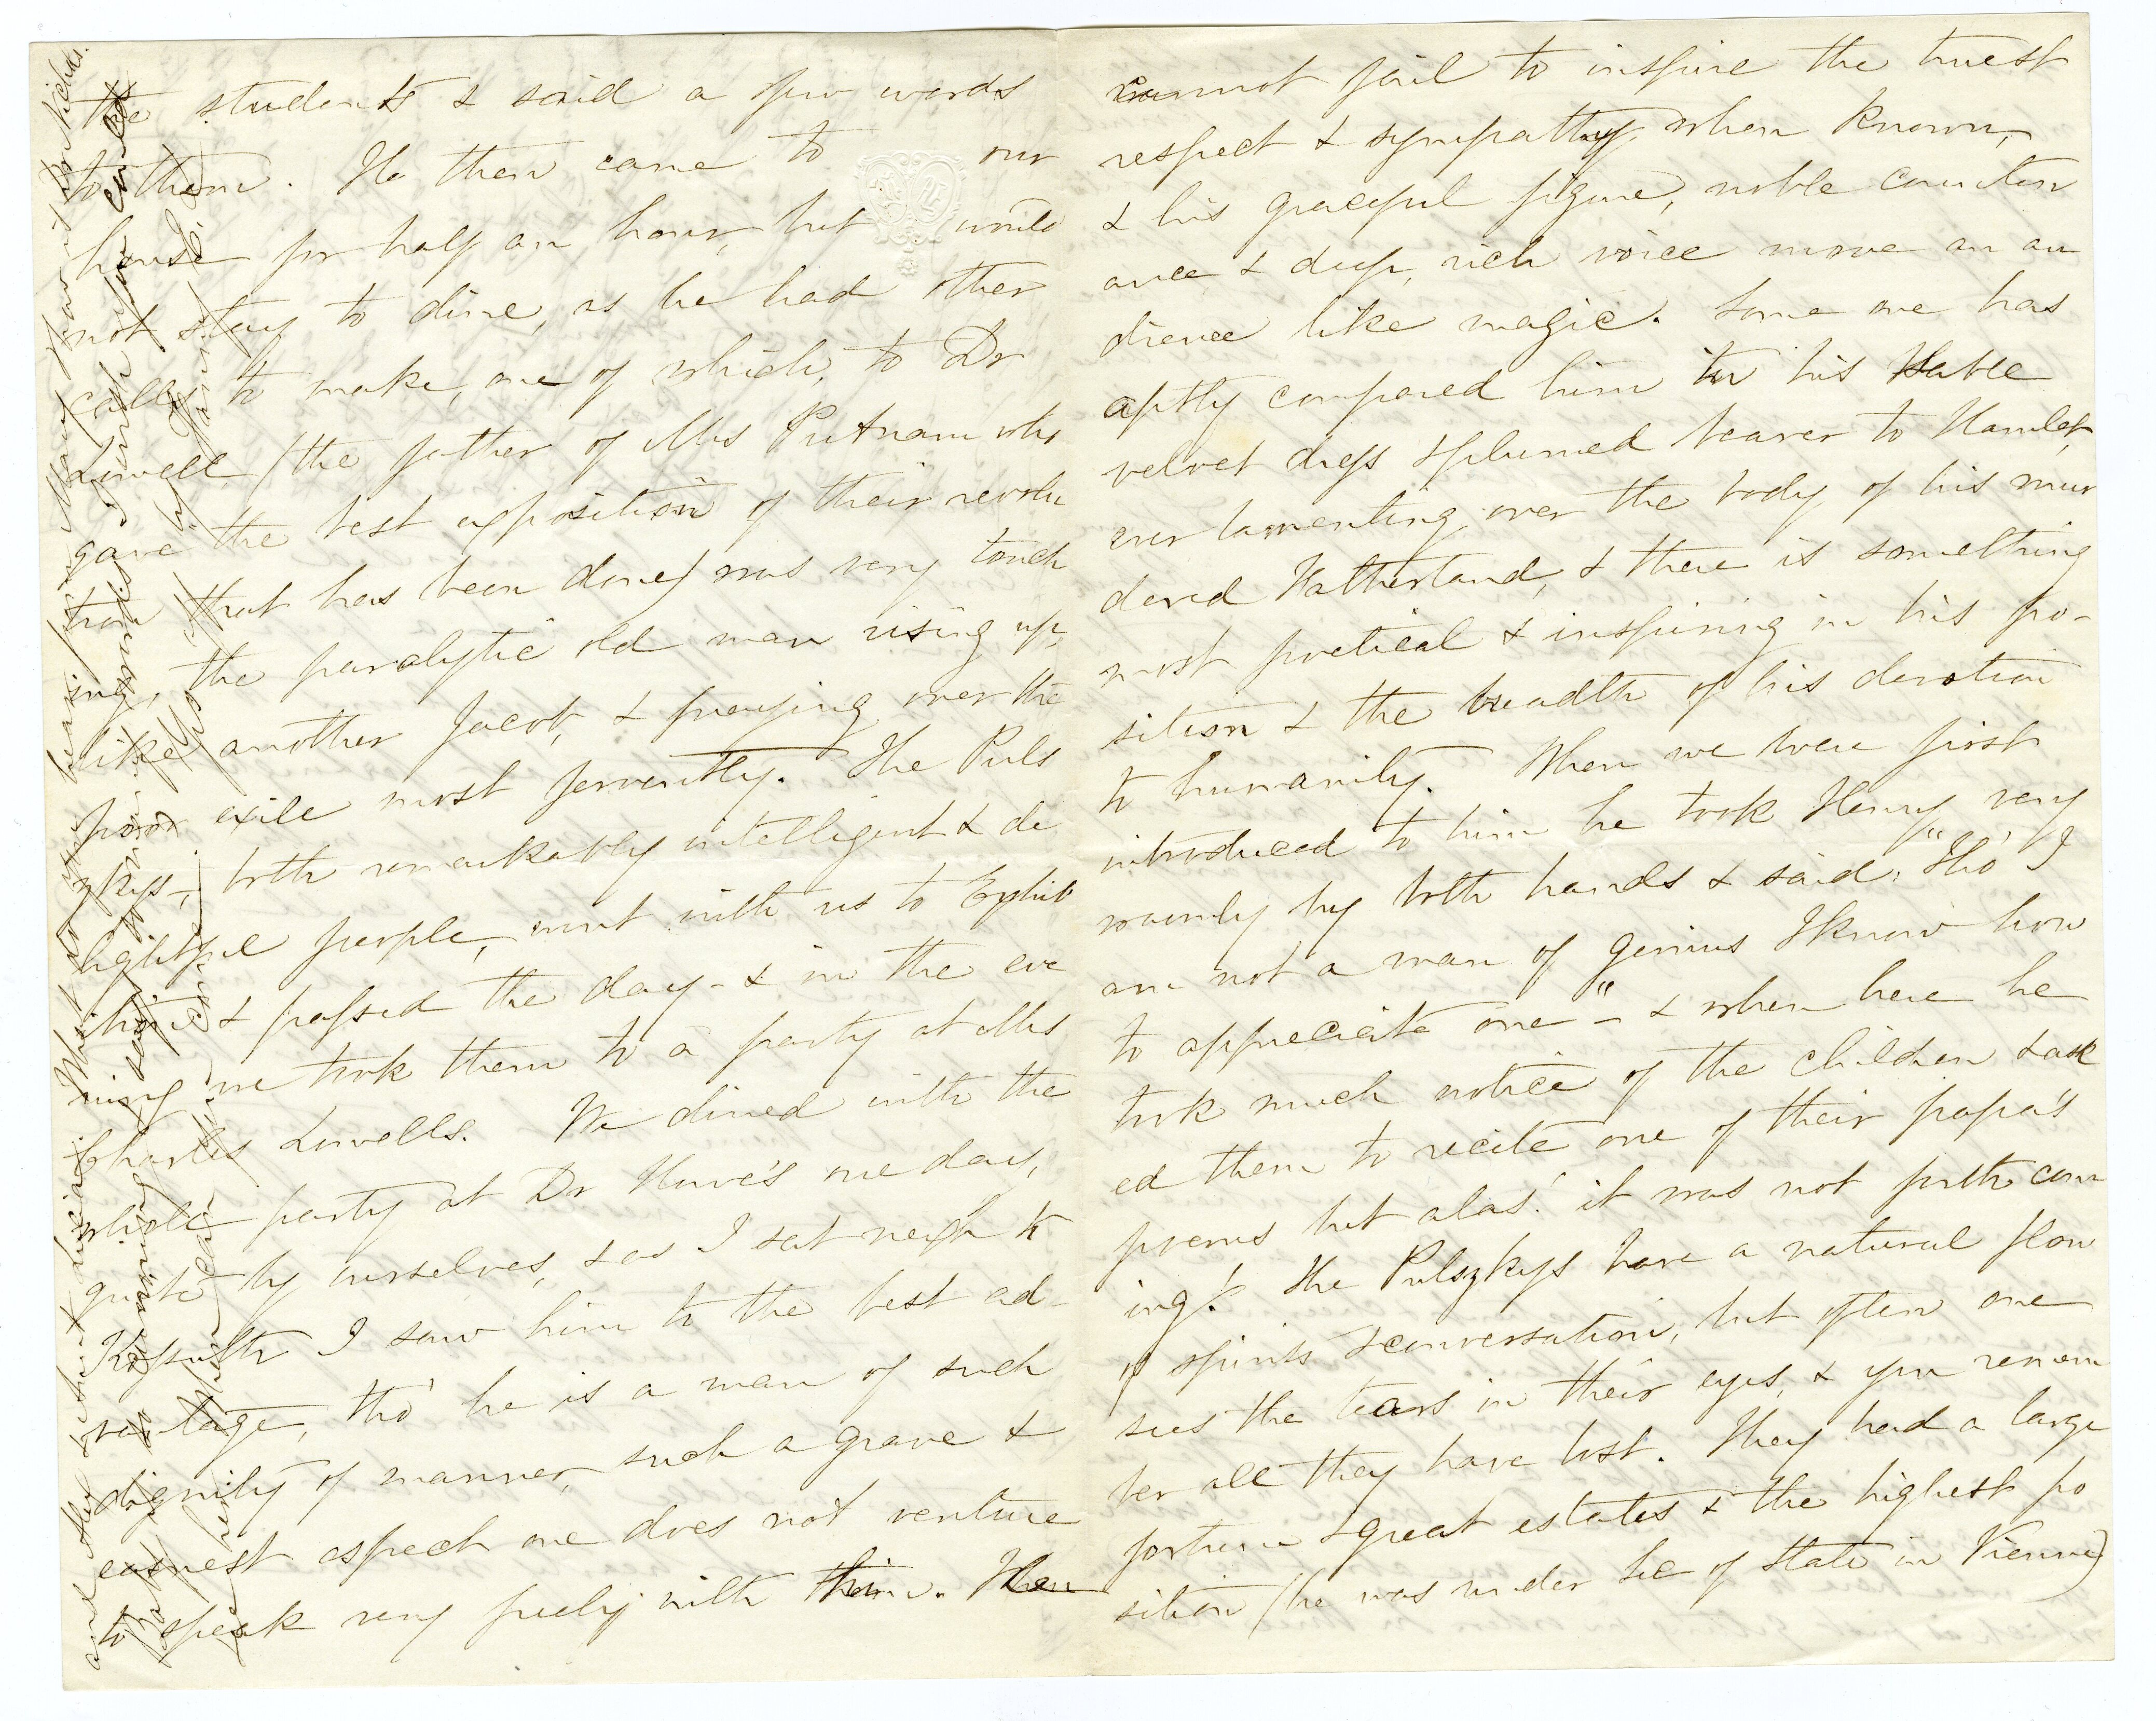 the students & said a few words
to them. He then came to our
house for half an hour, but would
not stay to dine, as he had other
calls to make, one of which, to Dr
Lowell (the father of Mrs Putnam who
gave the best exposition of their revolu
tion that has been done) was very touch
ing, the paralytic old man rising up,
like another Jacob, & praying over the
poor exile most fervently. The Puls
zkys, both remarkably intelligent & de
lightful people, went with us to Exhib
ition & passed the day - & in the eve
ning we took them to a party at Mrs
Charles Lowells. We dined with the
whole party at Dr Howe's one day,
quite by ourselves, & as I sat next to
Kossuth I saw him to the best ad-
vantage, tho' he is a man of such
dignity of manner, such a grave &
earnest aspect one does not venture
to speak very freely with him.
cannot fail to inspire the truest
respect & sympathy when known,
& his graceful figure, noble counten
ance & deep, rich voice move an au
dience like magic. Some one has
aptly compared him in his sable
velvet dress & plumed beaver to Hamlet,
ever lamenting over the body of his mur
dered Fatherland, & there is something
most poetical & inspiring in his po-
sition & the breadth of his devotion
to humanity. When we were first
introduced to him he took Henry very
warmly by both hands & said: "Tho' I
am not a man of genius I know how
to appreciate one" - & when here he
took much notice of the children & ask
ed them to recite one of their papa's
poems but alas! it was not forth com
ing! The Pulszkys have a natural flow
of spirits & conversation, but often one
sees the tears in their eyes, & you remem
ber all they have lost. They had a large
fortune & great estates & the highest po
sition (he was under Sec of State in Vienna)